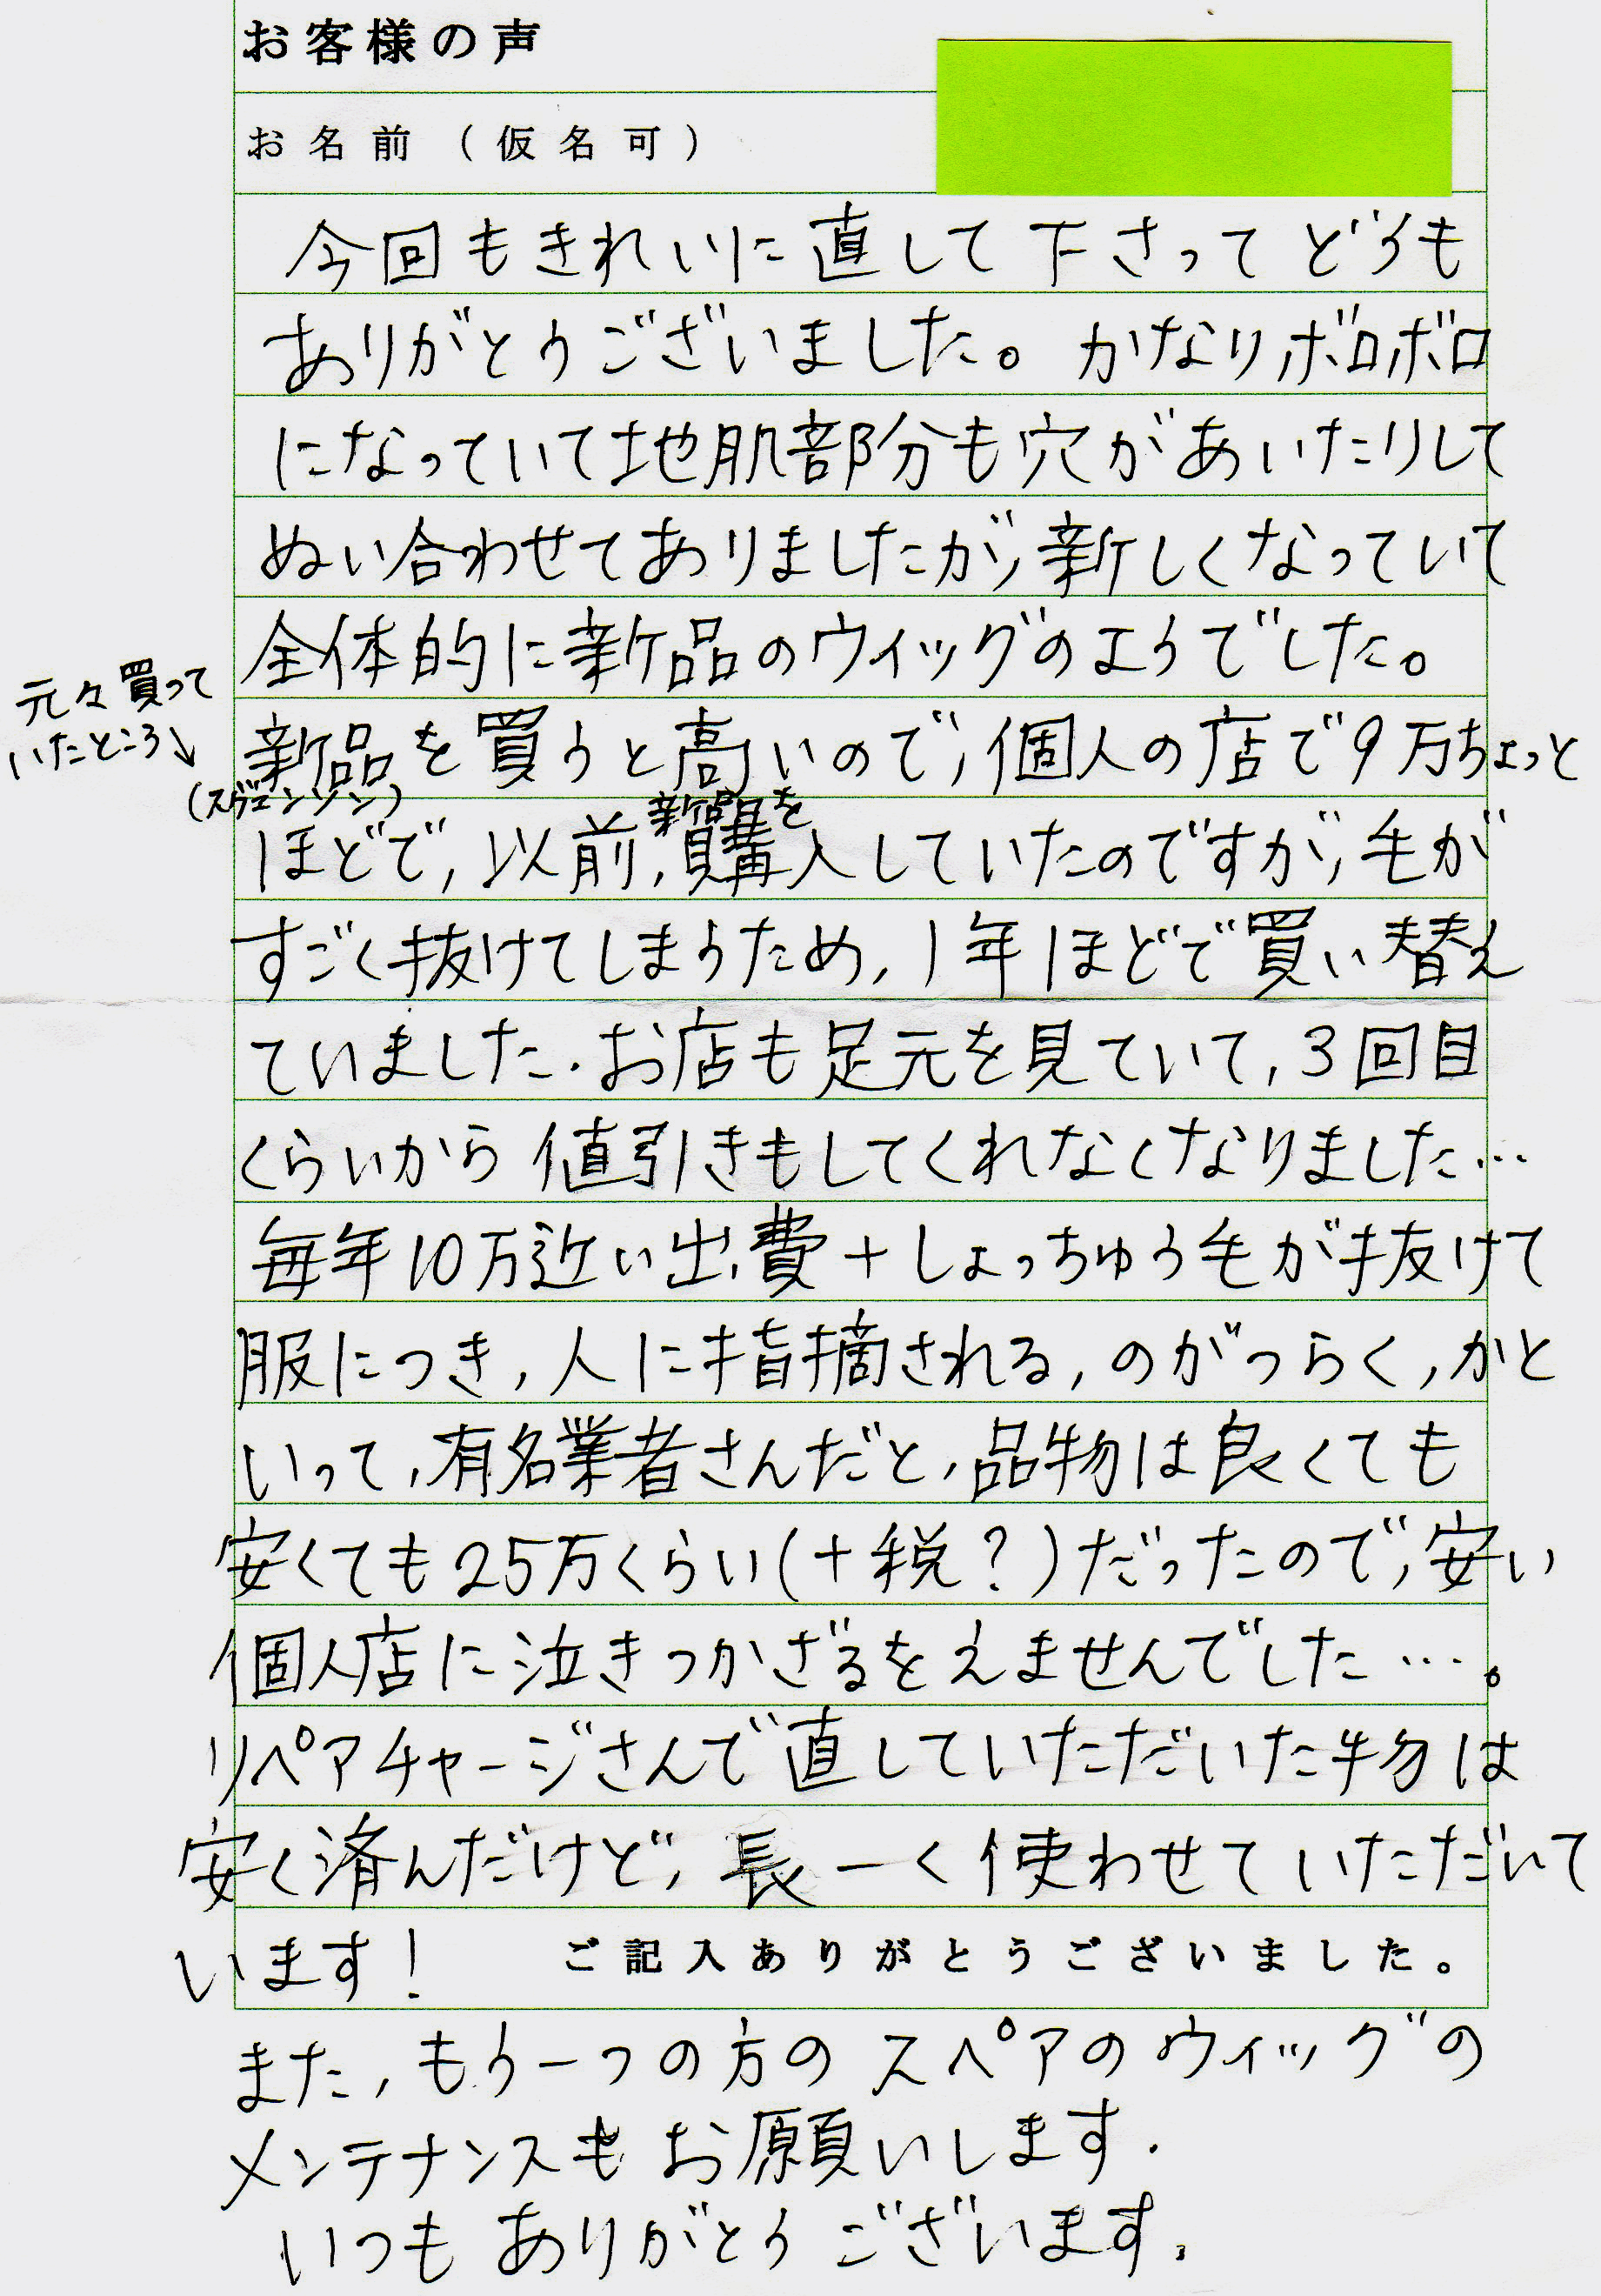 お客様の声
お名前（仮名可）
今回もきれいに直して下さってどうも
ありがとうございました。かなりボロボロ
になっていて地肌部分も穴があいたりして
ぬい合わせてありましたが、新しくなっていて
全体的に新品のウィッグのようでした。
元々買って
いたところ↘
(スヴェンソン)
新品を買うと高いので、個人の店で9万ちょっと
新品を
ほどで、以前、購入していたのですが、毛が
すごく抜けてしまうため、1年ほどで買い替え
ていました.お店も足元を見ていて、3回目
くらいから値引きもしてくれなくなりました…
毎年10万近い出費+しょっちゅう毛が抜けて
服につき、人に指摘される、のがつらく、かと
いって、有名業者さんだと、品物は良くても
安くても25万くらい(+税?)だったので、安い
個人店に泣きつかざるをえませんでした…。
リペアチャージさんで直していただいた物は
安く済んだけど、長ーく使わせていただいて
います!
ご記入ありがとうございました。
また、もう一つの方のスペアのウィッグの
メンテナンスもお願いします.
いつもありがとうございます.